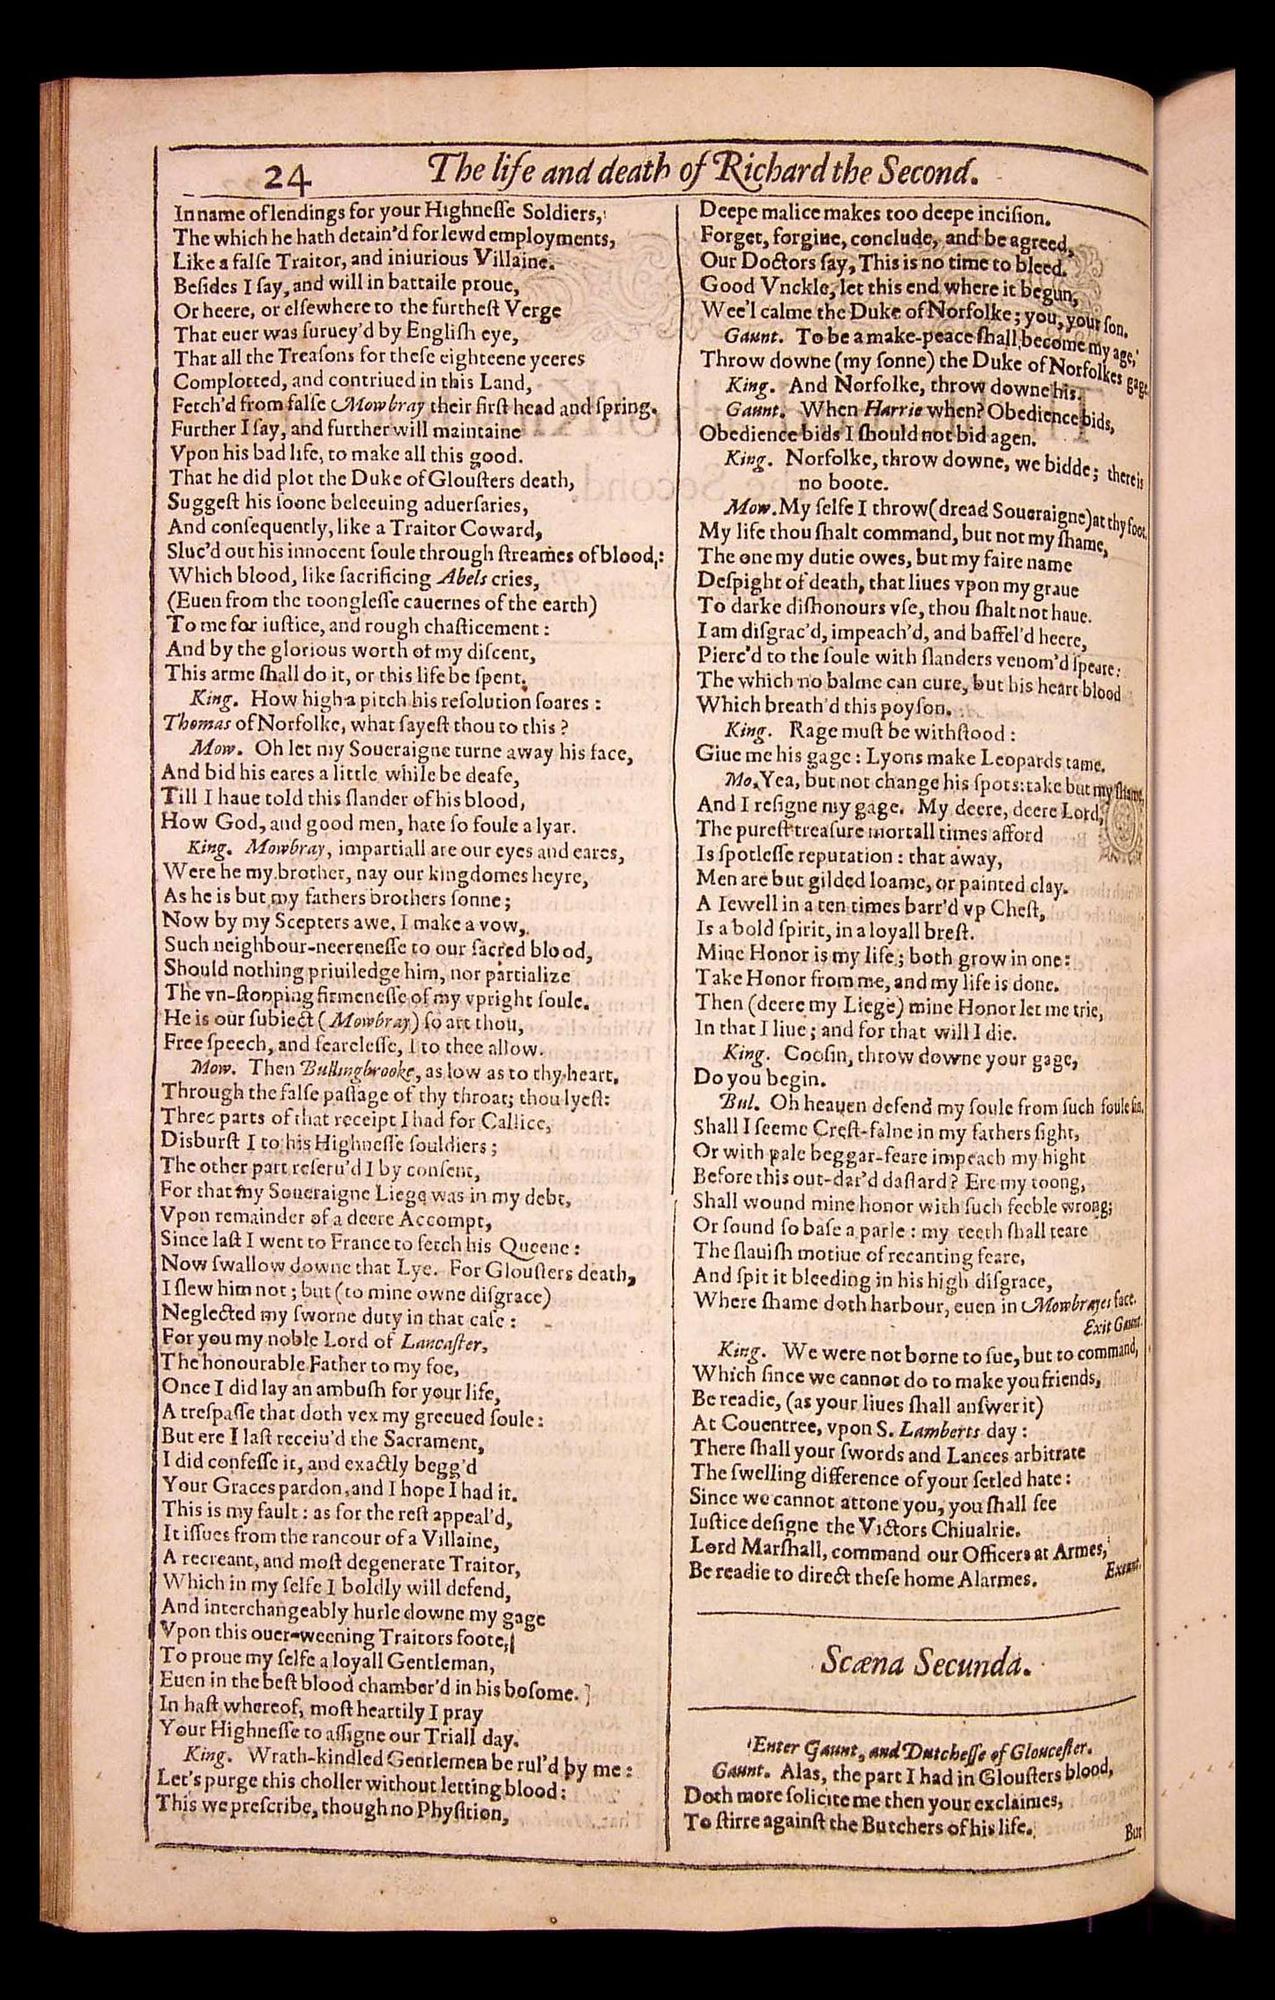 24 The life and death of Richard the Second.
In name of lendings for your Highneſſe Soldiers,
The which he hath detain'd for lewd employments,
Like a falſe Traitor, and iniurious Villaine.
Beſides I ſay, and will in battaile proue,
Or heere, or elſewhere to the furtheſt Verge
That euer was ſuruey'd by Engliſh eye,
That all the Treaſons for theſe eighteene yeeres
Complotted, and contriued in this Land,
Fetch'd from falſe Mowbray their firſt head and ſpring.
Further I ſay, and further will maintaine
Vpon his bad life, to make all this good.
That he did plot the Duke of Glouſters death,
Suggeſt his ſoone beleeuing aduerſaries,
And conſequently, like a Traitor Coward,
Sluc'd out his innocent ſoule through ſtreames of blood,:
Which blood, like ſacrificing Abels cries,
(Euen from the toongleſſe cauernes of the earth)
To me for iuſtice, and rough chaſticement:
And by the glorious worth of my diſcent,
This arme ſhall do it, or this life be ſpent.
King. How high a pitch his reſolution ſoares:
Thomas of Norfolke, what ſayeſt thou to this?
Mow. Oh let my Soueraigne turne away his face,
And bid his eares a little while be deafe,
Till I haue told this ſlander of his blood,
How God, and good men, hate ſo foule a lyar.
King. Mowbray, impartiall are our eyes and eares,
Were he my brother, nay our kingdomes heyre,
As he is but my fathers brothers ſonne;
Now by my Scepters awe, I make a vow,
Such neighbour-neereneſſe to our ſacred blood,
Should nothing priuiledge him, nor partialize
The vn-ſtooping firmeneſſe of my vpright ſoule.
He is our ſubiect (Mowbray) ſo art thou,
Free ſpeech, and feareleſſe, I to thee allow.
Mow. Then Bullingbrooke, as low as to thy heart,
Through the falſe paſſage of thy throat; thou lyeſt:
Three parts of that receipt I had for Callice,
Disburſt I to his Highneſſe ſouldiers;
The other part reſeru'd I by conſent,
For that my Soueraigne Liege was in my debt,
Vpon remainder of a deere Accompt,
Since laſt I went to France to fetch his Queene:
Now ſwallow downe that Lye. For Glouſters death,
I ſlew him not; but (to mine owne diſgrace)
Neglected my ſworne duty in that caſe:
For you my noble Lord of Lancaſter,
The honourable Father to my foe,
Once I did lay an ambuſh for your life,
A treſpaſſe that doth vex my greeued ſoule:
But ere I laſt receiu'd the Sacrament,
I did confeſſe it, and exactly begg'd
Your Graces pardon, and I hope I had it.
This is my fault: as for the reſt appeal'd,
It iſſues from the rancour of a Villaine,
A recreant, and moſt degenerate Traitor,
Which in my ſelfe I boldly will defend,
And interchangeably hurle downe my gage
Vpon this ouer-weening Traitors foote,
To proue my ſelfe a loyall Gentleman,
Euen in the beſt blood chamber'd in his boſome.
In haſt whereof, moſt heartily I pray
Your Highneſſe to aſſigne our Triall day.
King. Wrath-kindled Gentlemen be rul'd by me:
Let's purge this choller without letting blood:
This we preſcribe, though no Phyſition,
Deepe malice makes too deepe inciſion.
Forget, forgiue, conclude, and be agreed,
Our Doctors ſay, This is no time to bleed.
Good Vnckle, let this end where it begun,
Wee'l calme the Duke of Norfolke; you, your ſon.
Gaunt. To be a make-peace ſhall become my age,
Throw downe (my ſonne) the Duke of Norfolkes gage.
King. And Norfolke, throw downe his.
Gaunt. When Harrie when? Obedience bids,
Obedience bids I ſhould not bid agen.
King. Norfolke, throw downe, we bidde; there is
no boote.
Mow. My ſelfe I throw (dread Soueraigne) at thy foot.
My life thou ſhalt command, but not my ſhame,
The one my dutie owes, but my faire name
Deſpight of death, that liues vpon my graue
To darke diſhonours vſe, thou ſhalt not haue.
I am diſgrac'd, impeach'd, and baffel'd heere,
Pierc'd to the ſoule with ſlanders venom'd ſpeare:
The which no balme can cure, but his heart blood
Which breath'd this poyſon.
King. Rage muſt be withſtood:
Giue me his gage: Lyons make Leopards tame.
Mo. Yea, but not change his ſpots: take but my ſhame,
And I reſigne my gage. My deere, deere Lord,
The pureſt treaſure mortall times afford
Is ſpotleſſe reputation: that away,
Men are but gilded loame, or painted clay.
A Iewell in a ten times barr'd vp Cheſt,
Is a bold ſpirit, in a loyall breſt.
Mine Honor is my life; both grow in one:
Take Honor from me, and my life is done.
Then (deere my Liege) mine Honor let me trie,
In that I liue; and for that will I die.
King. Cooſin, throw downe your gage,
Do you begin.
Bul. Oh heauen defend my ſoule from ſuch foule ſin.
Shall I ſeeme Creſt-falne in my fathers ſight,
Or with pale beggar-feare impeach my hight
Before this out-dar'd daſtard? Ere my toong,
Shall wound mine honor with ſuch feeble wrong;
Or ſound ſo baſe a parle: my teeth ſhall teare
The ſlauiſh motiue of recanting feare,
And ſpit it bleeding in his high diſgrace,
Where ſhame doth harbour, euen in Mowbrayes face.
Exit Gaunt.
King. We were not borne to ſue, but to command,
Which ſince we cannot do to make you friends,
Be readie, (as your liues ſhall anſwer it)
At Couentree, vpon S. Lamberts day:
There ſhall your ſwords and Lances arbitrate
The ſwelling difference of your ſetled hate:
Since we cannot attone you, you ſhall ſee
Iuſtice deſigne the Victors Chiualrie.
Lord Marſhall, command our Officers at Armes,
Be readie to direct theſe home Alarmes. Exeunt.
Scæna Secunda.
Enter Gaunt, and Dutcheſſe of Glouceſter.
Gaunt. Alas, the part I had in Glouſters blood,
Doth more ſolicite me then your exclaimes,
To ſtirre againſt the Butchers of his life.
But